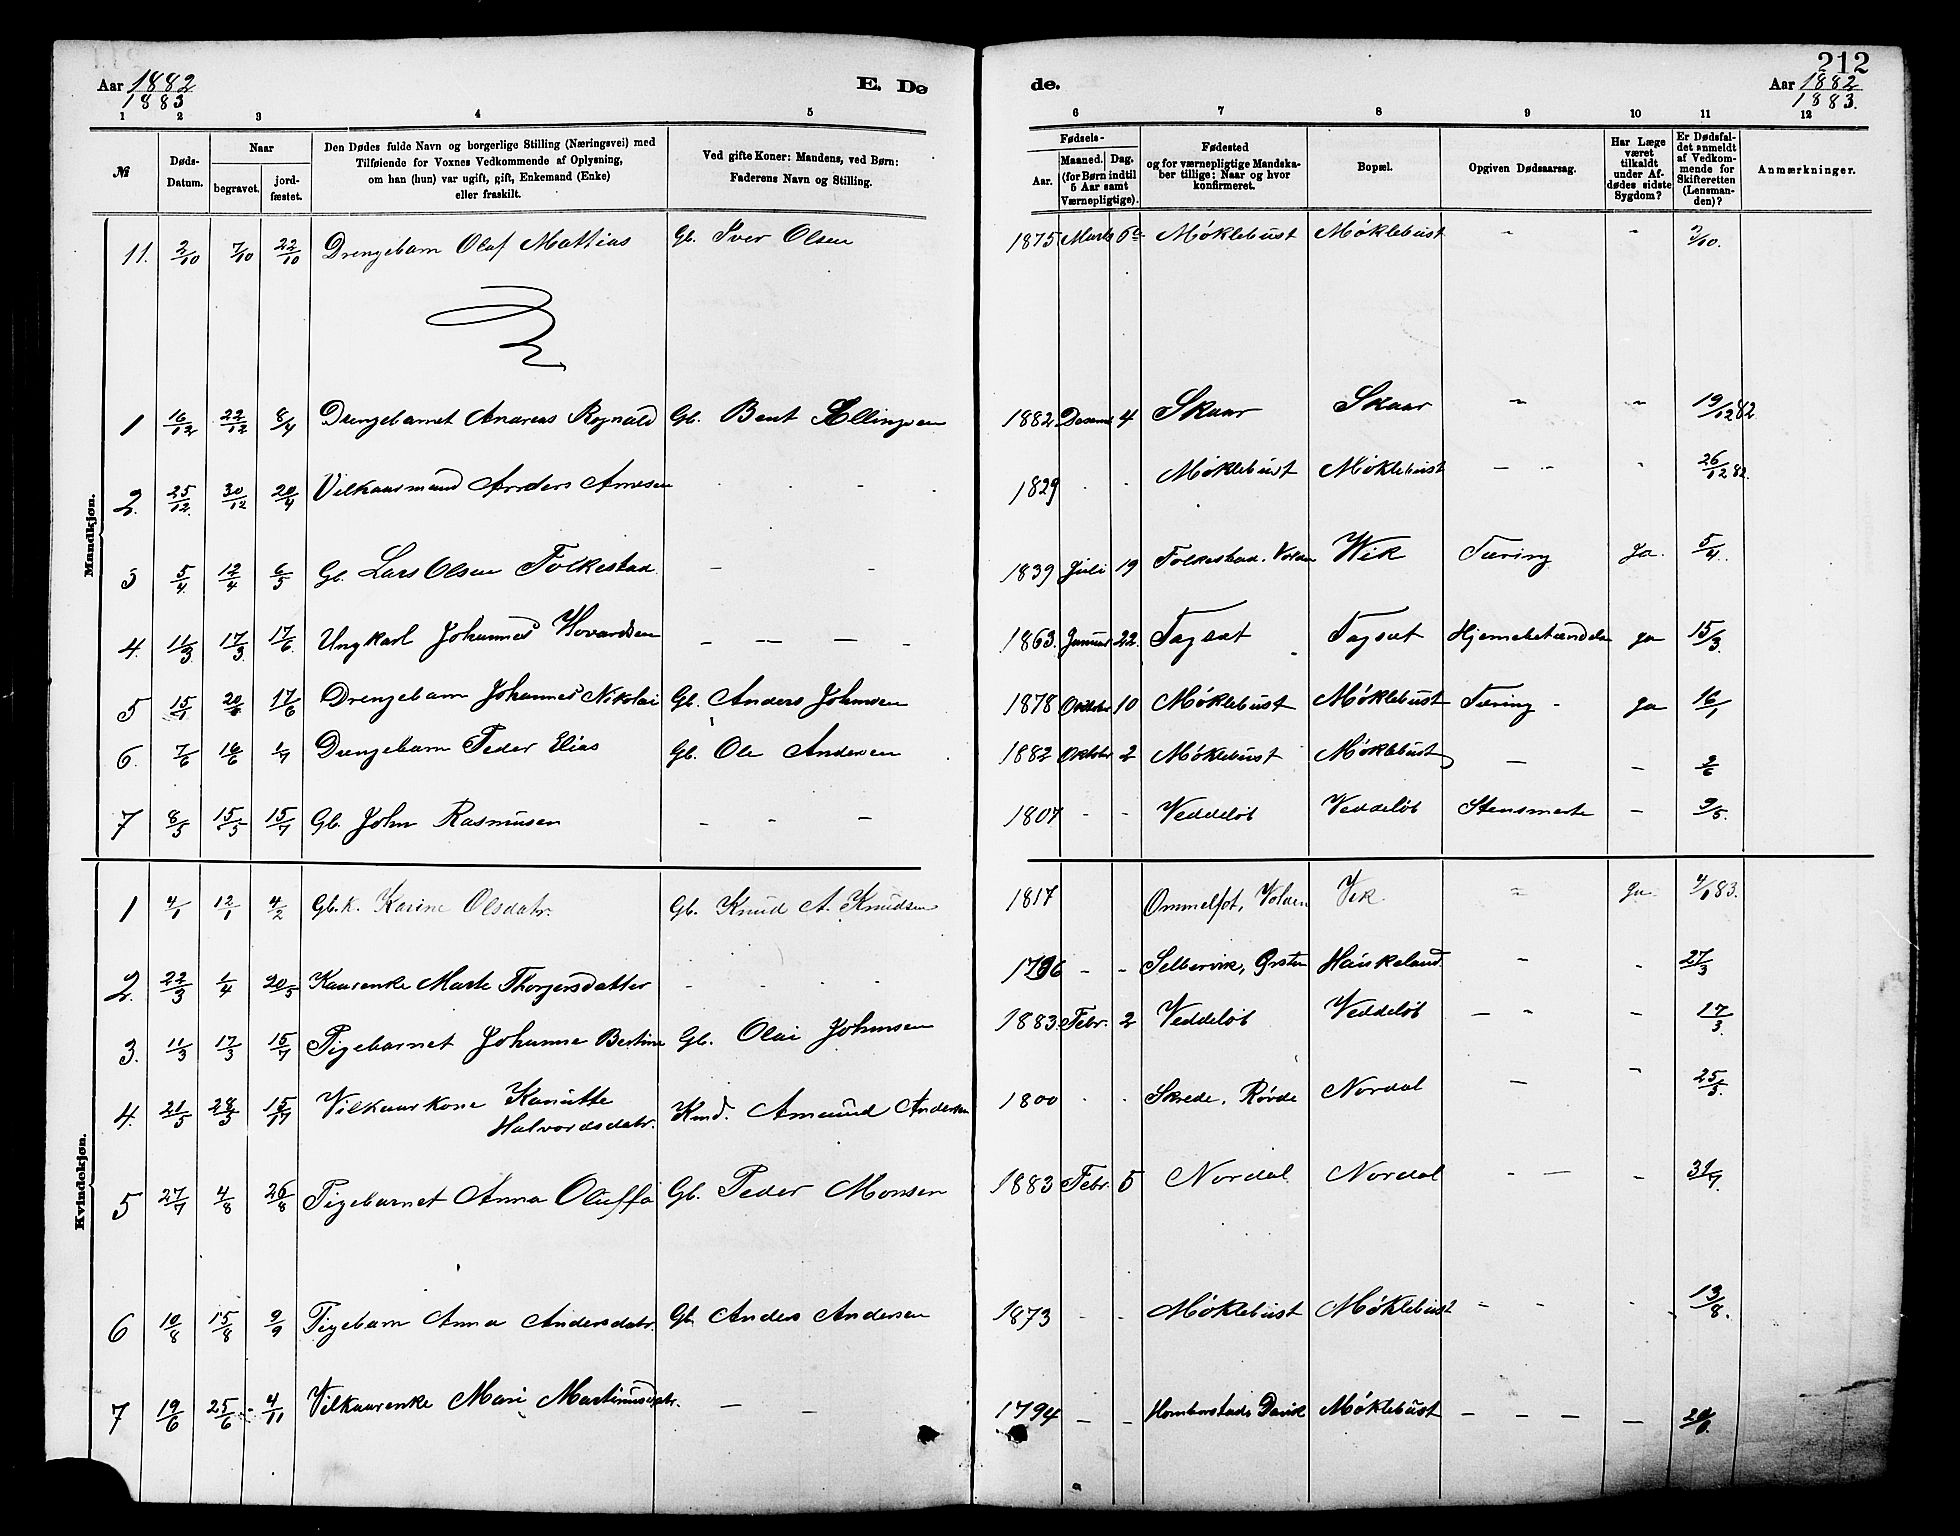 212
Aar 1882 E. De de. Aar 1882
1883 1883.
1 2 3 4 5 6 7 8 9 10 11 12
№
Døds-Datum.
Naar
begravet.
jordfæstet.
Den Dødes fulde Navn og borgerlige Stilling (Næringsvei) med
Tilføiende for Voxnes Vedkommende af Oplysning,
om han (hun) var ugift, gift, Enkemand (Enke)
eller fraskilt.
Ved gifte Koner: Mandens, ved Børn:
Faderens Navn og Stilling.
Fødsels-
Aar.
Maaned. Dag.
(for Børn indtil
5 Aar samt
Værnepligtige).
Fødested
og for værnepligtige Mandska-
ber tillige: Naar og hvor
konfirmeret.
Bopæl.
Opgiven Dødsaarsag.
Har Læge
været
tilkaldt
under Af-
dødes sidste
Sygdom?
Er Dødsfal-
det anmeldt
af Vedkom-
mende for
Skifteretten
(Lensman-
den)?
Anmærkninger.
Mandkjøn.
11. 2/10 7/10 22/10 Drengebarn Olaf Mattias Gb. Iver Olsen 1875 Marts 6 Møklebust Møklebust - - 2/10.
1 16/12 22/12 8/4 Drengebarnet Anareas Rognald Gb. Bent Ellingsen 1882 Decemb 4 Skaar Skaar - - 19/12 82.
2. 25/12. 30/12 20/4 Vilkaarmand Anders Arnesen - - - 1829 - - Møklebust Møklebust - - - 26/12 82.
3 5/4 12/4 6/5 Gb. Lars Olsen Folkestad - - 1839 Juli 19 Folkestad, Volden Wik Tæring Ja. 5/4.
4. 11/3 17/3 17/6. Ungkarl Johannes Hovardsen - - - - 1863. Januar 22. Tagsæt Tagsæt Hjernebetændelse Ja 15/3.
5 15/1 20/1 17/6 Drengebarn Johannes Nikolai Gb. Anders Johnsen 1878 Oktober 10 Møklebust Møklebust Tæring - Ja 16/1
6. 7/6 16/6 1/7 Drengebarn Peder Elias Gb. Ole Andersen 1882 Oktober 2 Møklebust Møklebust - - 9/6
7 8/5 15/5 15/7 Gb. John Rasmusen - - - 1807 - - Veddeløb Veddeløb Stensmerte - 9/5.
Kvindekjøn.
1 4/1 12/1 4/2 Gb.k. Karine Olsdatr. Gb. Knud A. Knudsen 1817 Ommelfot, Volden Vik. - Ja 4/1 83.
2. 22/3 1/4 20/5 Kaarenke Marte Thorgersdatter - - - - 1796 - - Selbervik, Ørsten Haukeland - - 27/3
3. 11/3 17/3 15/7 Pigebarnet Johanne Bertine Gb. Olai Johnsen 1883. Febr. 2 Veddeløb Veddeløb - - - 17/3.
4. 21/5 28/5 15/7 Vilkaarkone Kanutte Kmd. Amund Andersen 1800 - - Skrede, Røvde Nordal - - 25/5.
Halvordsdatr.
5 27/7 4/8 26/8 Pigebarnet Anna Oluffa Gb. Peder Monsen 1883 Febr. 5 Nordal. Nordal - - - 31/7.
6 10/8 15/8 9/9 Pigebarn Anna Andersdatr. Gb Anders Andersen 1873 - - Møklebust Møklebust - - - 13/8.
7 19/6 25/6 4/11 Vilkaarenke Mari Martinusdatr. - - 1794 - - Homborstad, Davik Møklebust - - - - 20/6.